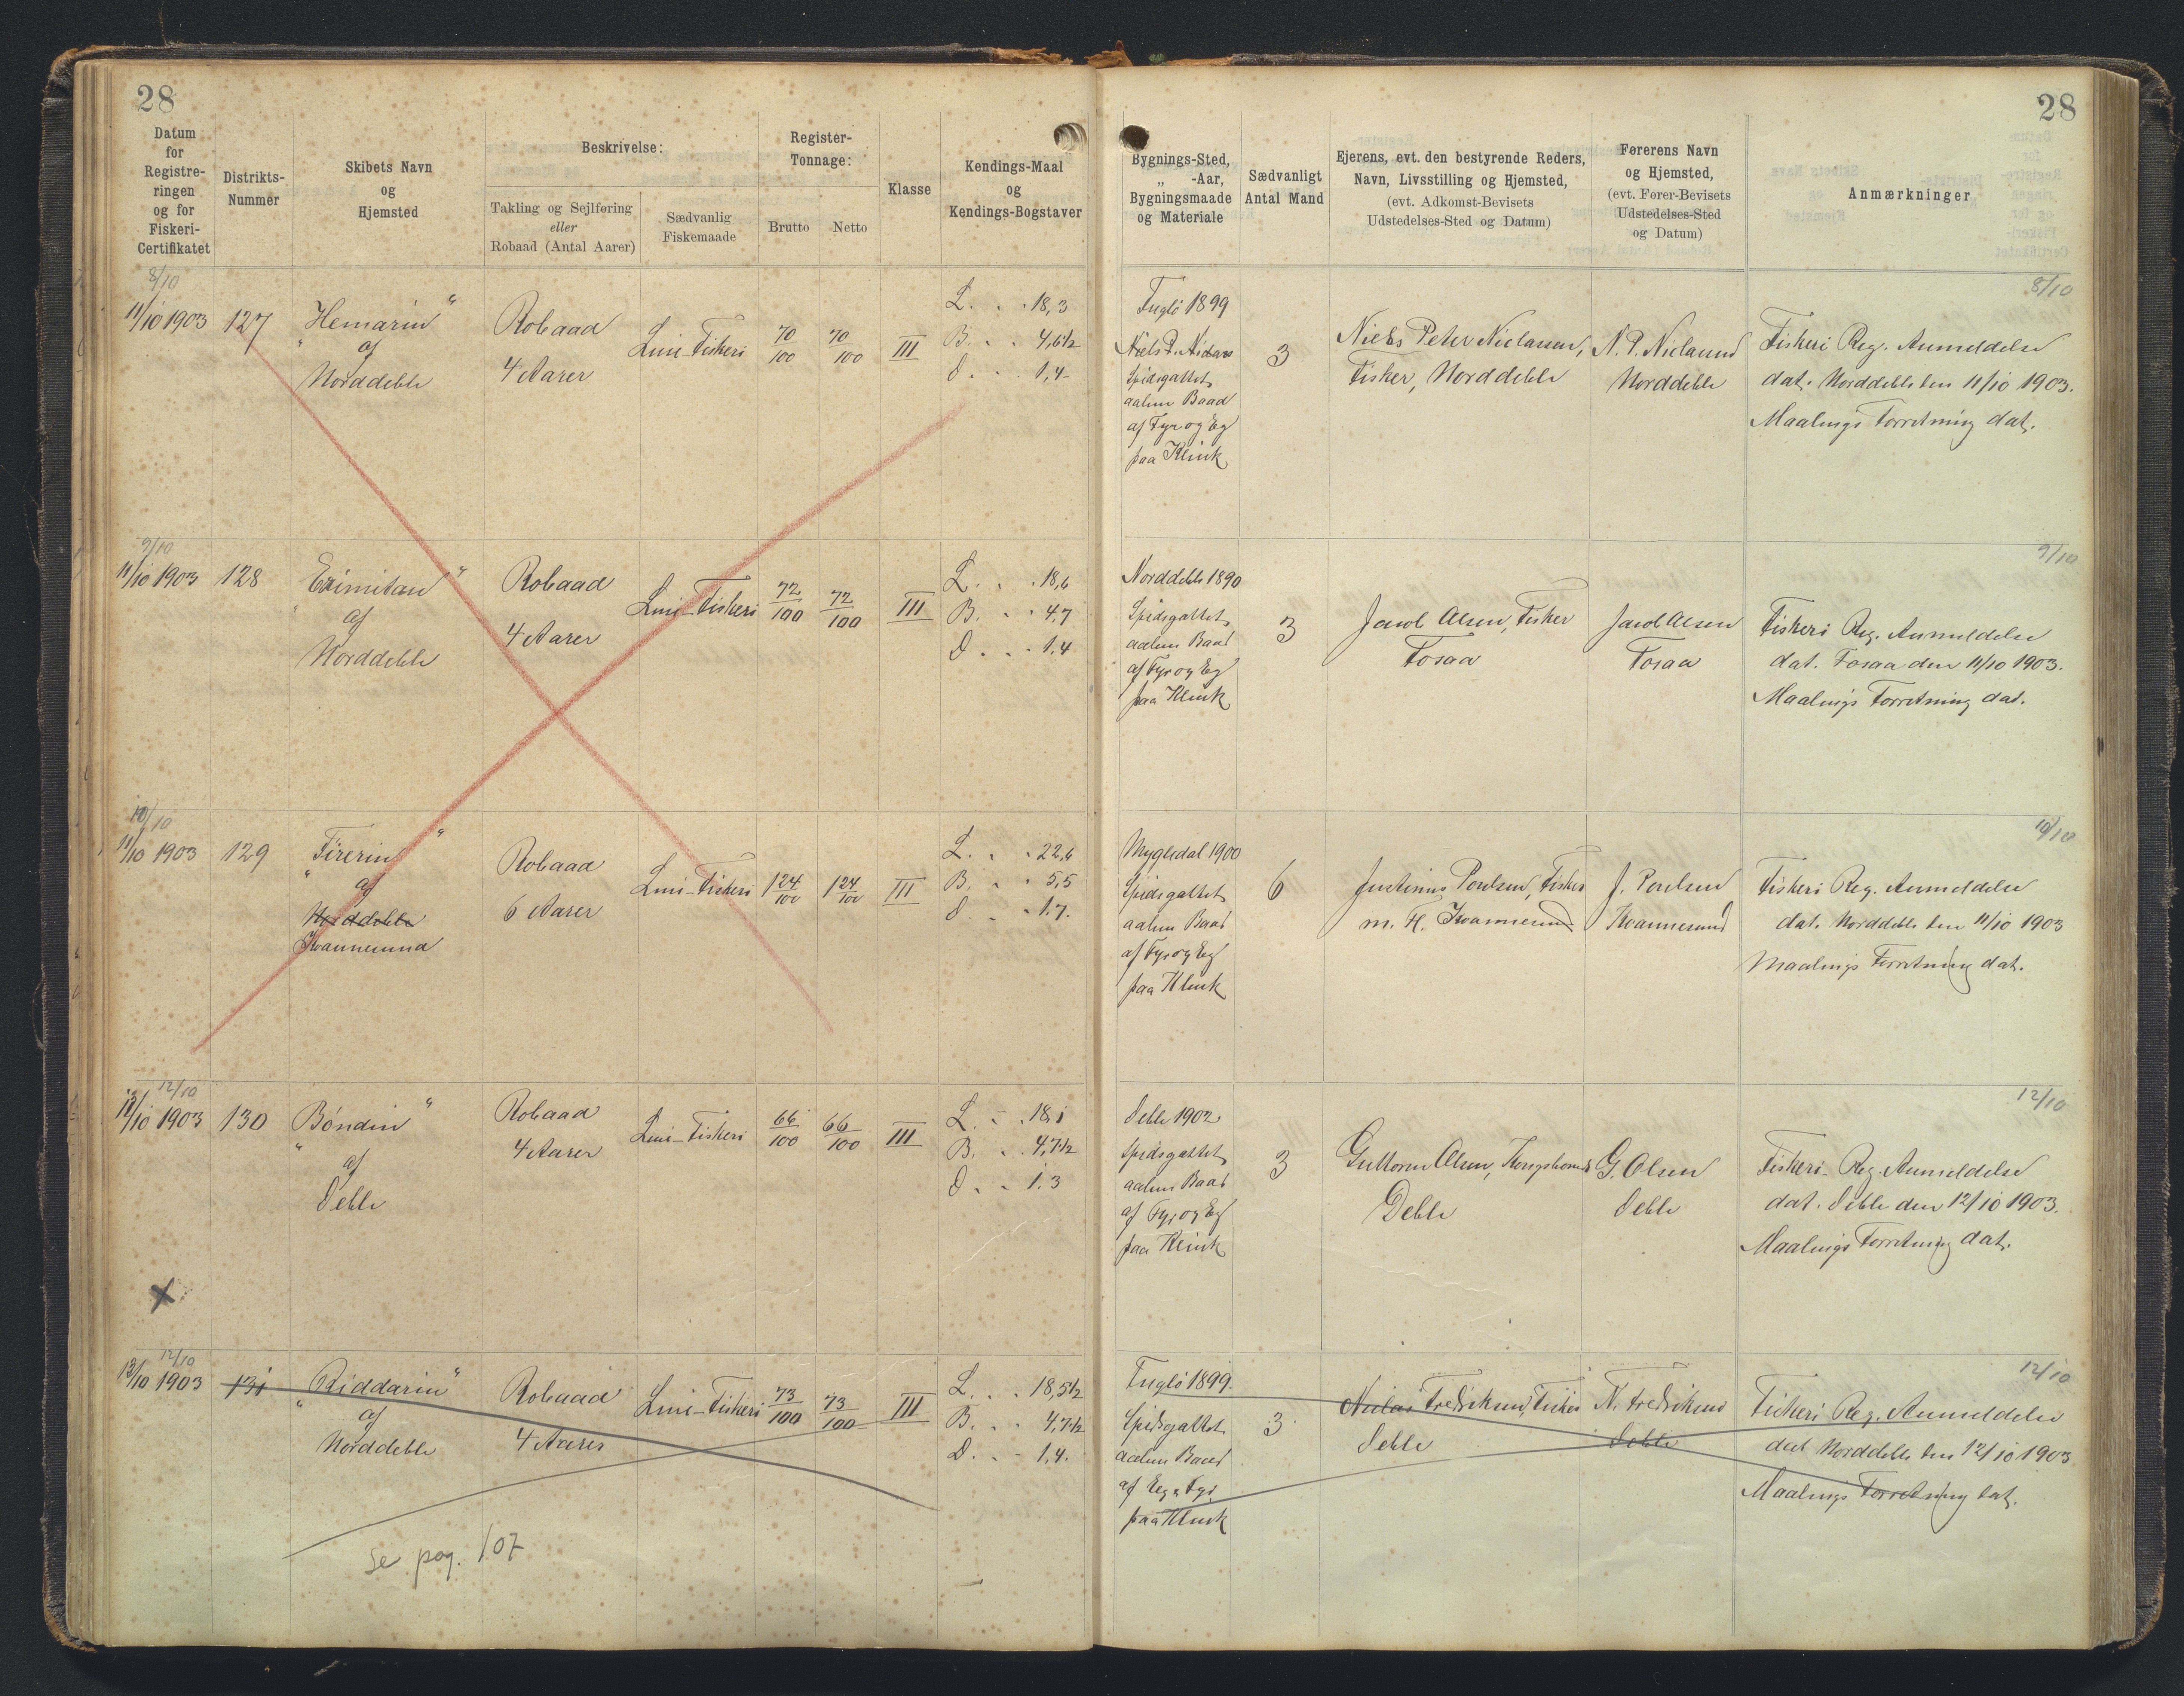 28
28
Datum
for
Registre-
ringen
og for
Fiskeri-
Certifikatet
Distrikts-
Nummer
Skibets Navn
og
Hjemsted
Beskrivelse:
Takling og Sejlføring
eller
Robaad (Antal Aarer)
Sædvanlig
Fiskemaade
Register-
Tonnage:
Brutto Netto
Klasse
Kendings-Maal
og
Kendings-Bogstaver
Bygnings-Sted,
„ -Aar,
Bygningsmaade
og Materiale
Sædvanligt
Antal Mand
Ejerens, evt. den bestyrende Reders,
Navn, Livsstilling og Hjemsted,
(evt. Adkomst-Bevisets
Udstedelses-Sted og Datum)
Førerens Navn
og Hjemsted,
(evt. Fører-Bevisets
Udstedelses-Sted
og Datum)
Anmærkninger
8/10
11/10 1903
127
"Hemarin"
af
Norddeble
Robaad
4 Aarer
Line-Fiskeri
70/100
70/100
III
L. . . 18,3
B. . . 4,6½
D. . . 1,4
Fuglö 1899
Spidsgattet
aaben Baad
af Fyr og Eg
paa Klink
3
Niels Peter Nielsen,
Fisker, Norddeble
Norddeble
8/10
Fiskeri Reg. Anmeldelse
dat. Norddeble den 11/10 1903.
Maalings Forretning dat.
9/10
11/10 1903
128
af
Norddeble
Robaad
4 Aarer
Line-Fiskeri
72/100
72/100
III
L. . . 18,6
B. . . 4,7
D. . . 1,4
Norddeble 1890
Spidsgattet
aaben Baad
af Fyr og Eg
paa Klink
3
Jacob Olsen, Fisker
Fosaa
Jacob Olsen
Fosaa
9/10
Fiskeri Reg. Anmeldelse
dat. Fosaa den 11/10 1903.
Maalings Forretning dat.
10/10
11/10 1903
129
"Firerin"
af
Norddeble
Kvannesund
Robaad
6 Aarer
Line-Fiskeri
1 24/100
1 24/100
III
L. . . 22,6
B. . . 5,5
D. . . 1,7.
Mygledal 1900
Spidsgattet
aaben Baad
af Fyr og Eg
paa Klink
6
Justinus Poulsen, Fisker
m. H. Kvannesund
J. Poulsen
Kvannesund
10/10
Fiskeri Reg. Anmeldelse
dat. Norddeble den 11/10 1903
Maalings Forretning dat.
12/10
12/10 1903
130
"Bóndin"
af
Deble
Robaad
4 Aarer
Line-Fiskeri
66/100
66/100
III
L. . . 18,1
B. . . 4,7½
D. . . 1,3
Deble 1902
Spidsgattet
aaben Baad
af Fyr og Eg
paa Klink
3
Guttorm Olsen, Kongsbonde
Deble
G. Olsen
Deble
12/10
Fiskeri-Reg. Anmeldelse
dat. Deble den 12/10 1903.
Maalings Forretning dat.
x
12/10
12/10 1903
131
"Riddarin"
af
Norddeble
Robaad
4 Aarer
Line-Fiskeri
73/100
73/100
III
L. . . 18,5½
B. . . 4,7½
D. . . 1,4.
Fuglö 1899.
Spidsgattet
aaben Baad
af Eg & Fyr
paa Klink
3
Fredriksen, Fisker
Deble
N. Fredriksen
Deble
12/10
Fiskeri Reg. Anmeldelse
dat Norddeble den 12/10 1903
Maalings Forretning dat.
se pag. 107